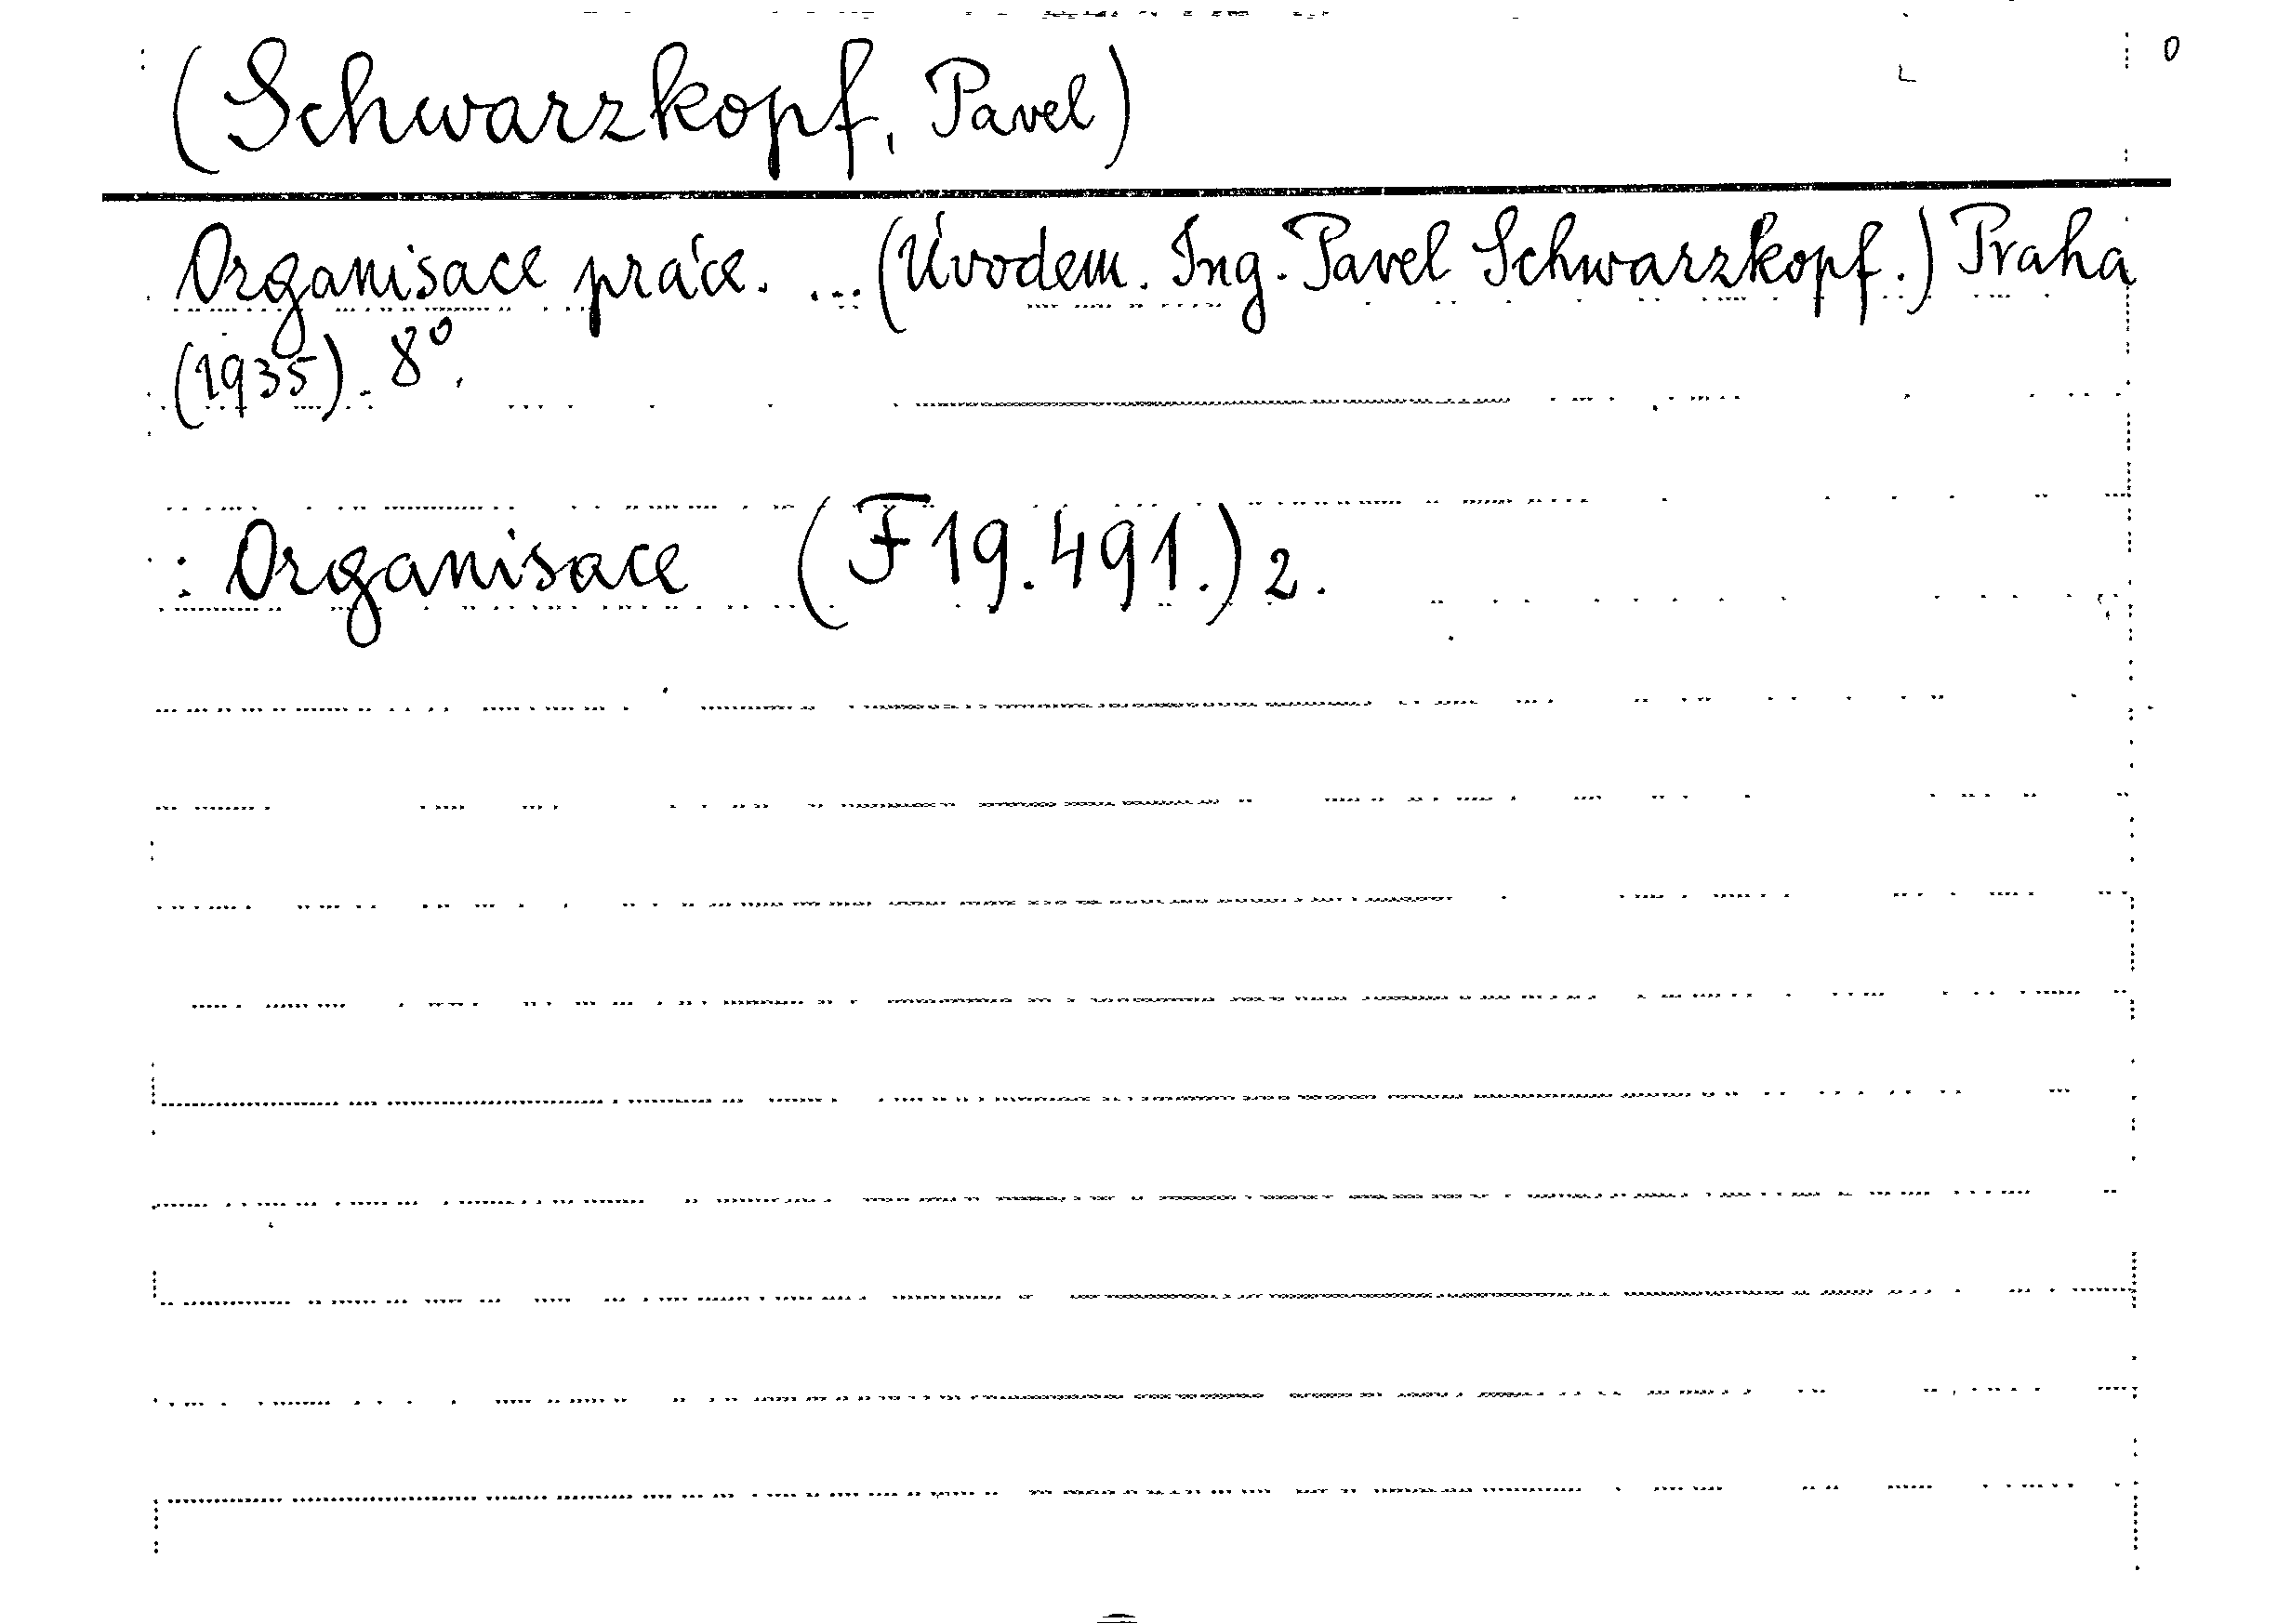 (Schwarzkopf, Pavel)
Organisace práce. ... (Úvodem. Ing. Pavel Schwarzkopf.) Praha
(1935). 8°.
: Organisace (F 19.491.) 2.